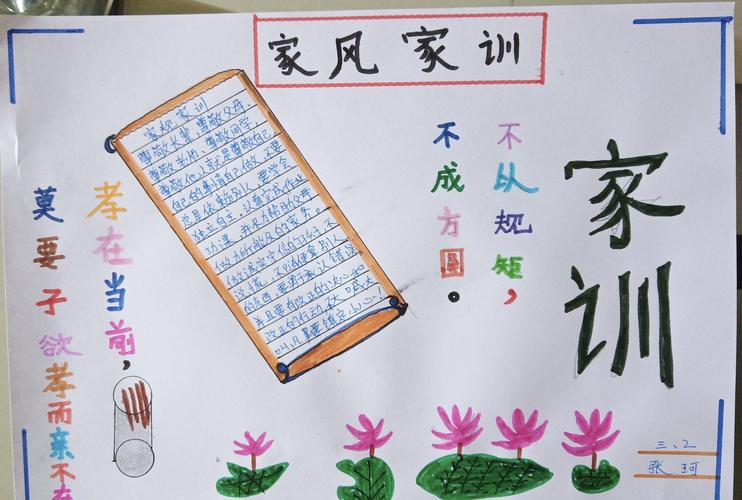 家风家训
家规家训
尊敬长辈，尊敬父母、
尊敬老师、尊敬同学，
尊敬他人就是尊敬自己。
自己的事情自己做，不要
总是依赖别人，要学会
独立自主，认真完成作业
功课，并尽力帮助父母
做力所能及的家务。
做诚实守信的孩子，不
说谎，不随便拿别人
的东西，要勇于承认错误
并且要有改正的决心和
改正的行动，不大喊大
叫，凡事要镇定小心。
不以规矩，
不成方圆。
家训
孝在当前，
莫要子欲孝而亲不在
三、2
张珂